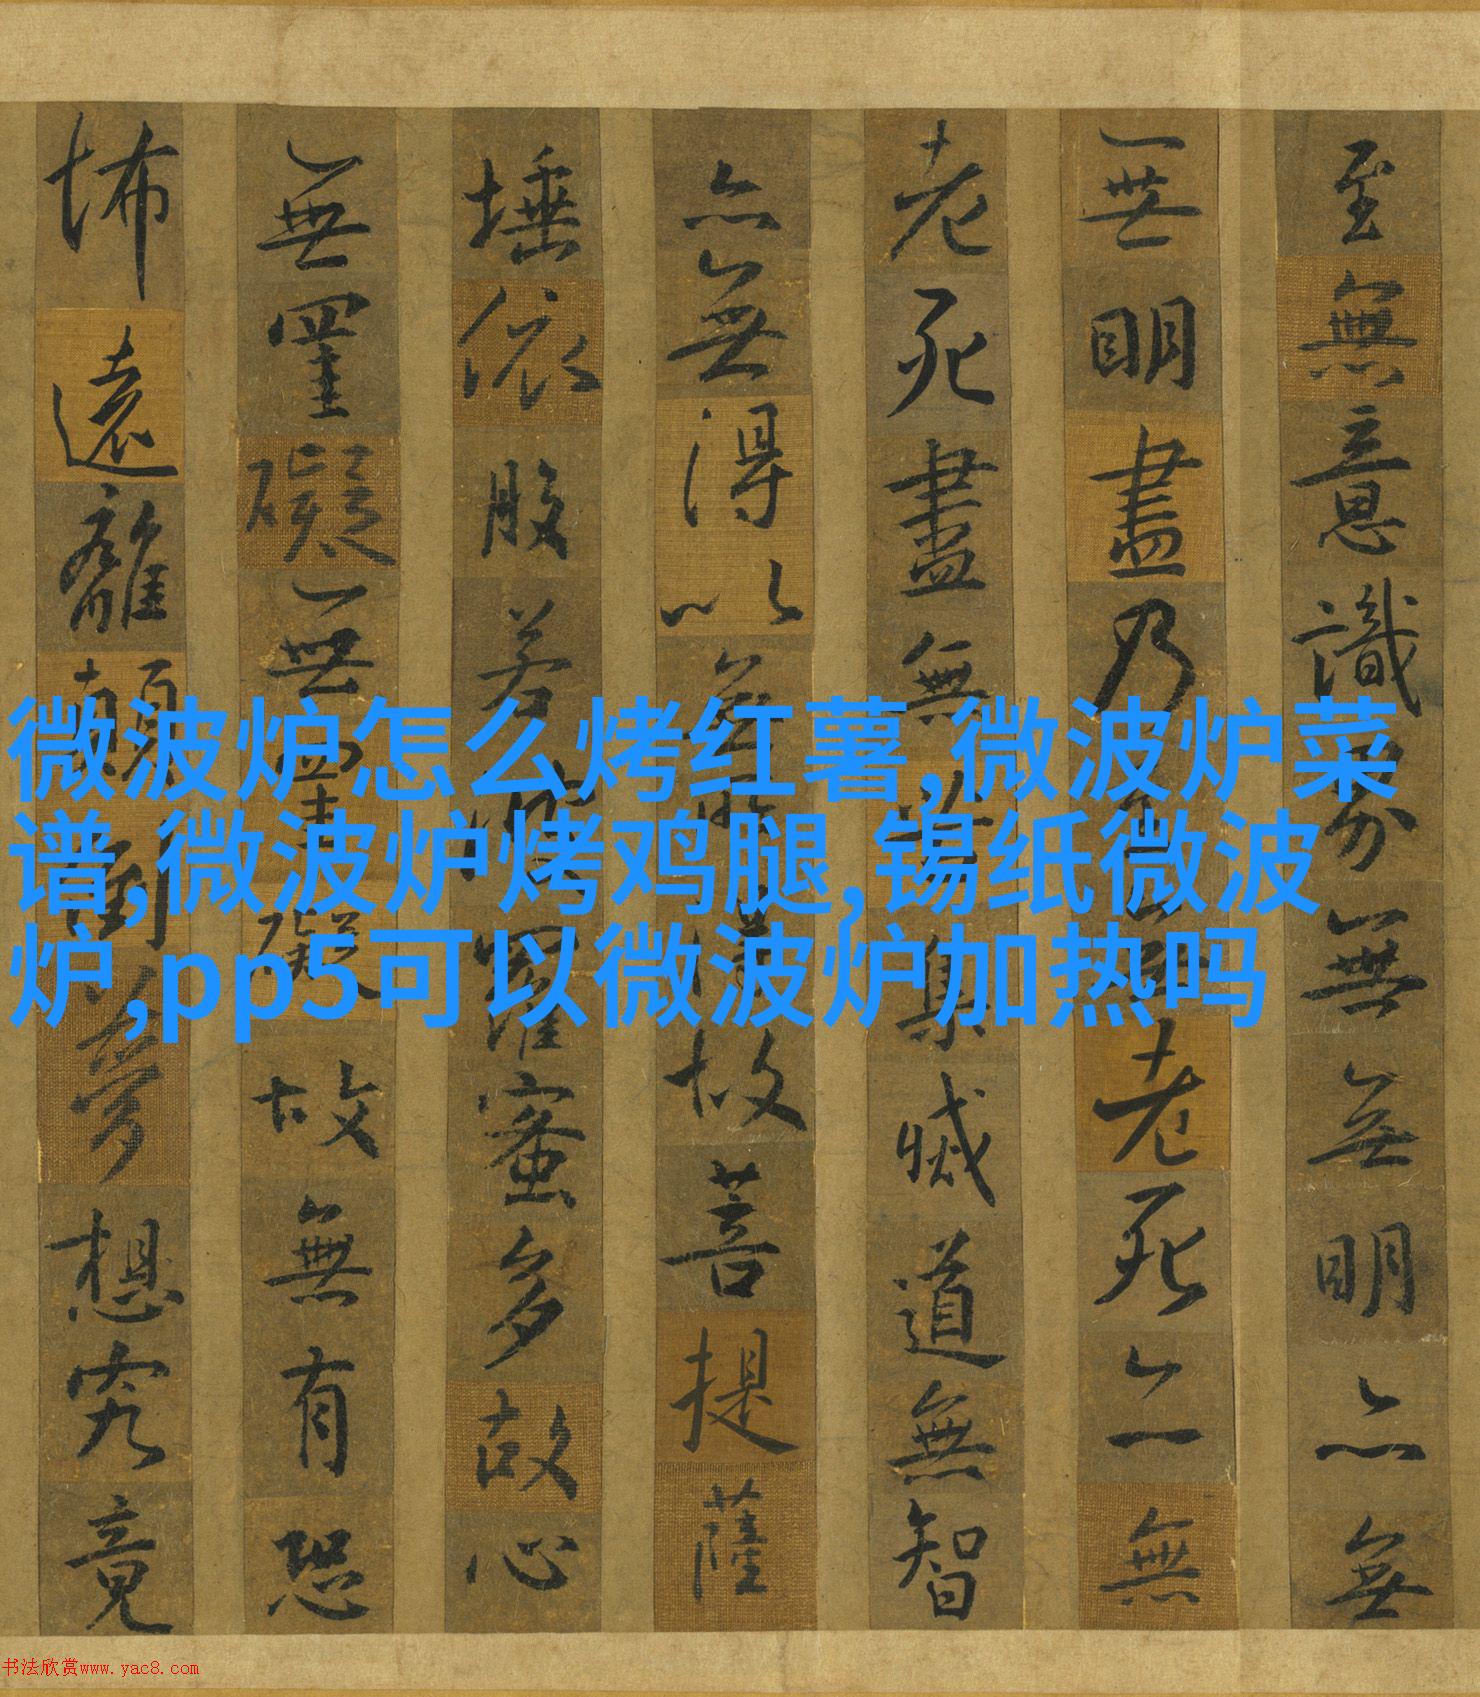 至無意識界無無明亦無
無明盡乃至無老死亦無
老死盡無苦集滅道無智
亦無得以無所得故菩提薩
埵依般若波羅蜜多故心
無罣礙無罣礙故無有恐
怖遠離顛倒夢想究竟
微波炉怎么烤红薯,微波炉菜
谱,微波炉烤鸡腿,锡纸微波
炉,pp5可以微波炉加热吗
书法欣赏www.yac8.com